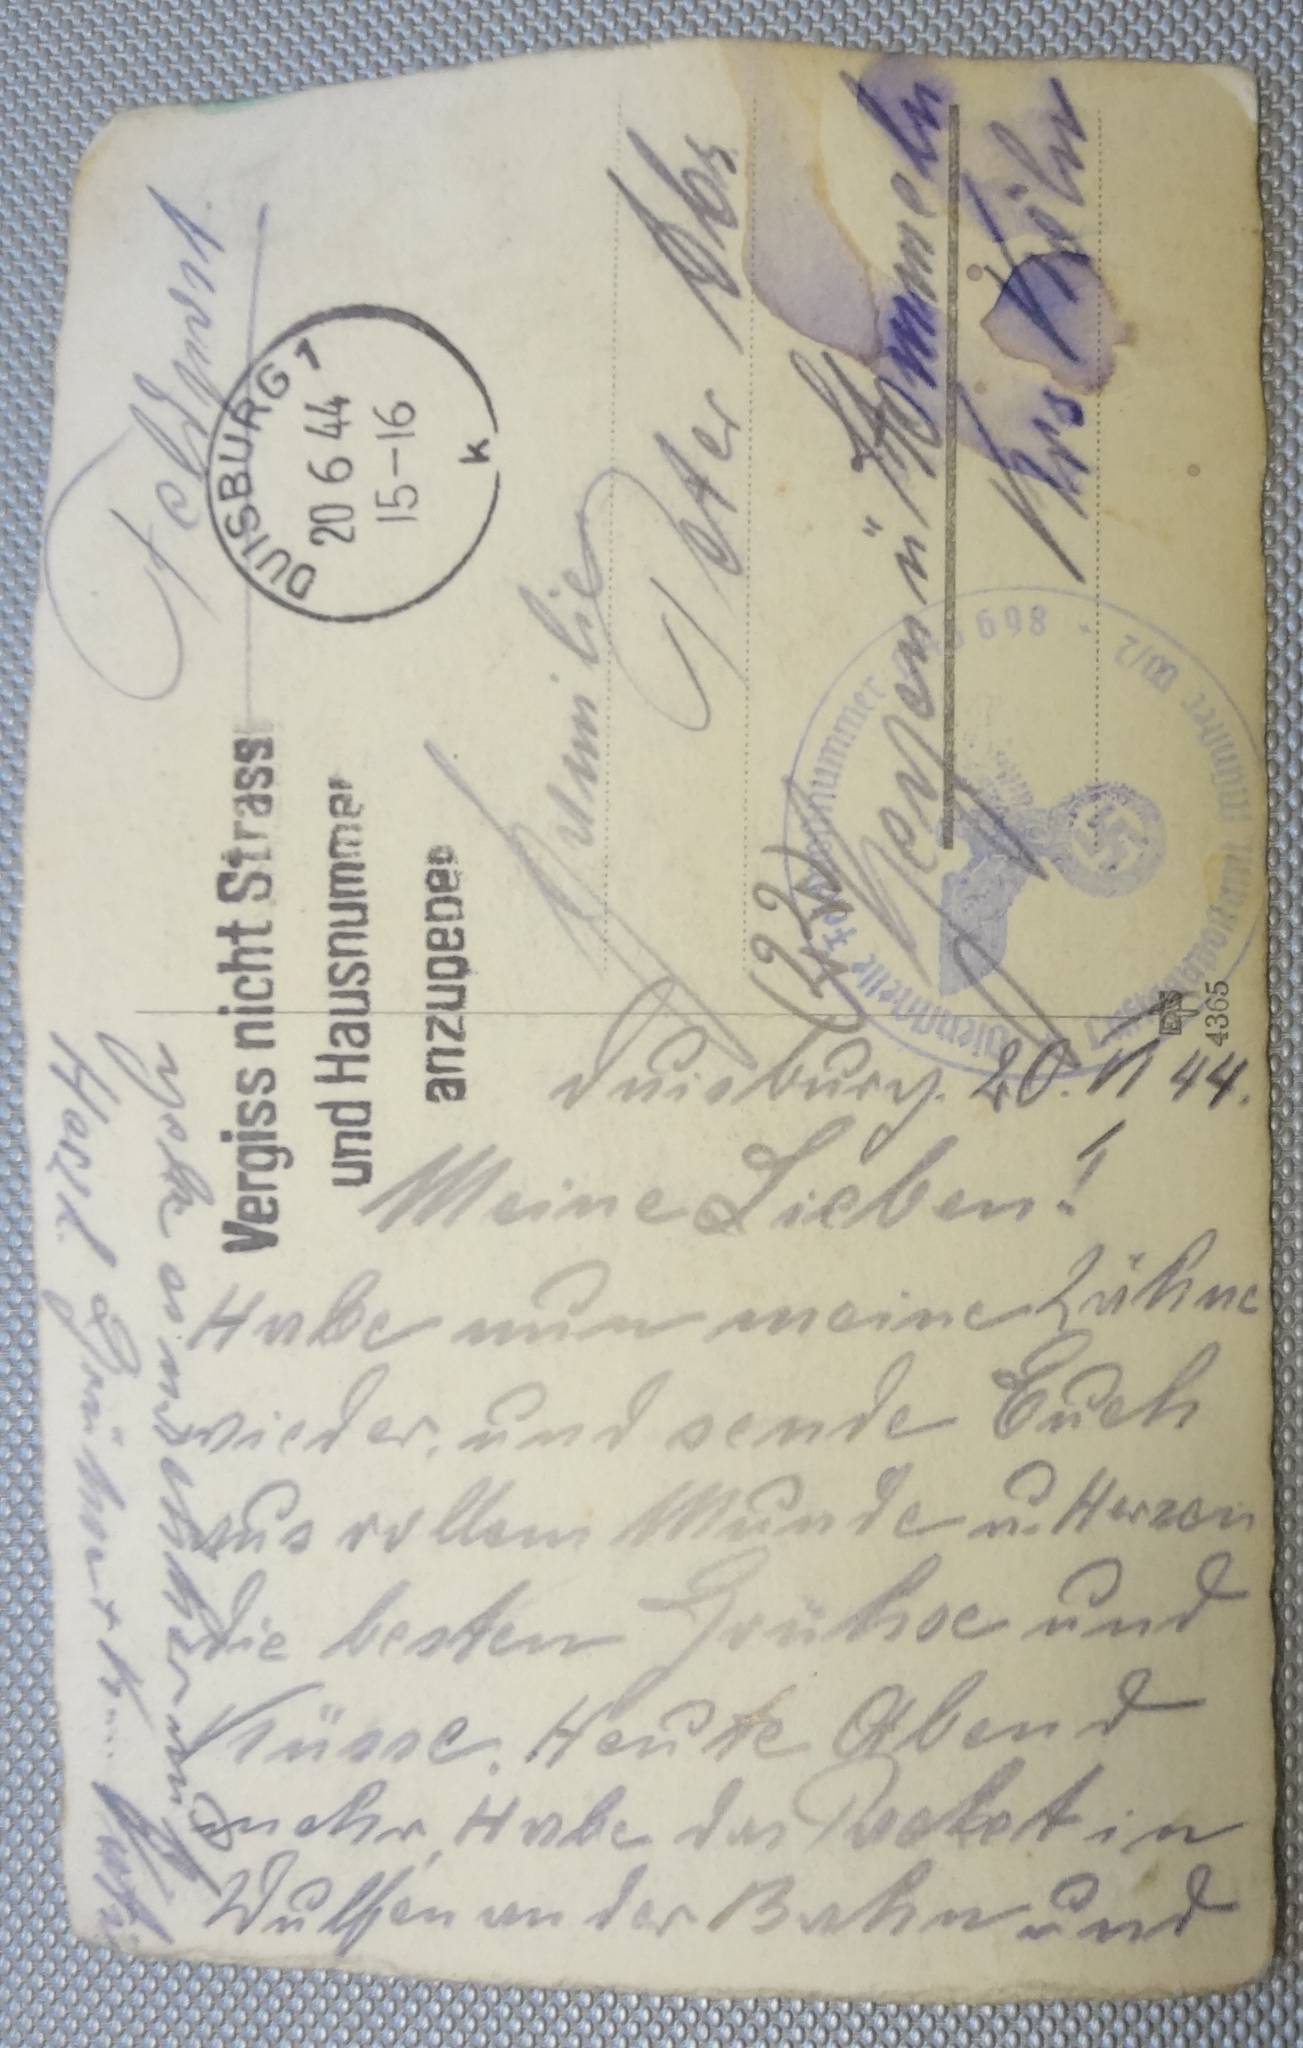 Feldpost
DUISBURG 1
20 6 44
15-16
k
Vergiss nicht Strass
und Hausnummer
anzugeben
Familie
Peter
(22)
Kommern
Krs Köln
Dienststelle Feldpostnummer
698
Luftgaupostamt Münster (W)/2
4365
Duisburg. 20. VI 44.
Meine Lieben!
Habe nun meine Zähne
wieder, und sende Euch
aus vollem Munde u. Herzen
die besten Grühse und
Küsse. Heute Abend
mehr, Habe das Packet in
Wulfen an der Bahn und
Herzl. Grühse